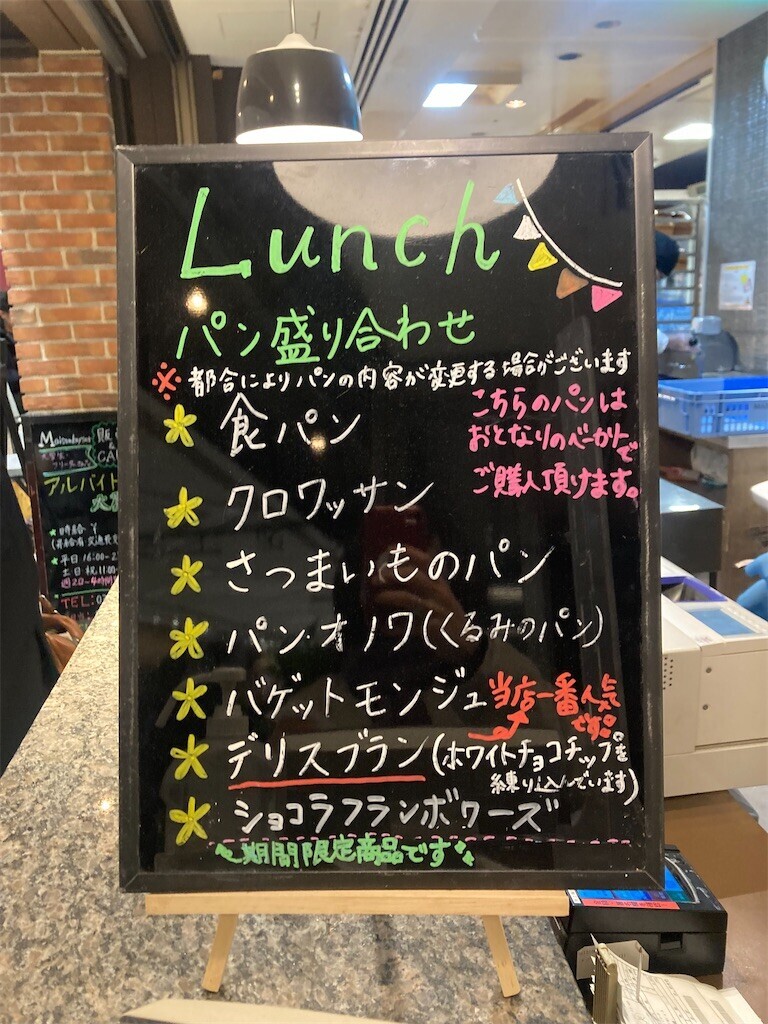 Lunch
パン盛り合わせ
※都合によりパンの内容が変更する場合がございます
こちらのパンは
おとなりのベーカリーで
ご購入頂けます。
食パン
クロワッサン
さつまいものパン
パン・オ ノワ(くるみのパン)
バゲットモンジュ
当店一番人気
です!
デリスブラン(ホワイトチョコチップを
練り込んでいます)
ショコラフランボワーズ
期間限定商品です
Maison
販
CA
アルバイト
時給 ¥
平日 16:00-2
土日祝 11:00-
週2日~4時間
TEL:0